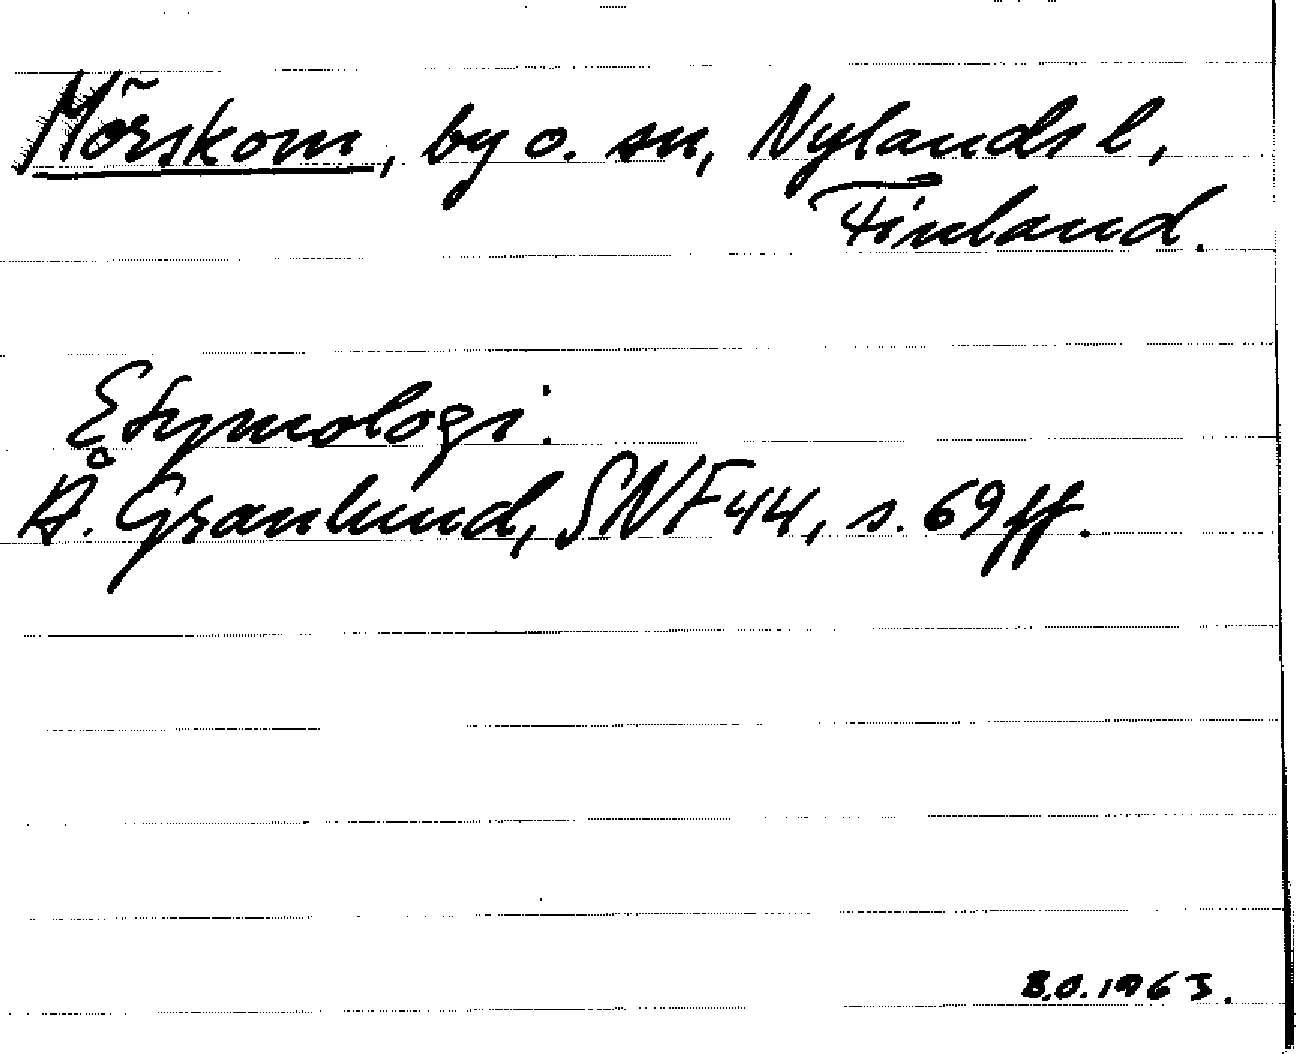 Mörskom, by o. sn, Nylands l,
Finland.
Etymologi.
Å. Granlund, SNF 44, s. 69 ff.
B.O. 1963.